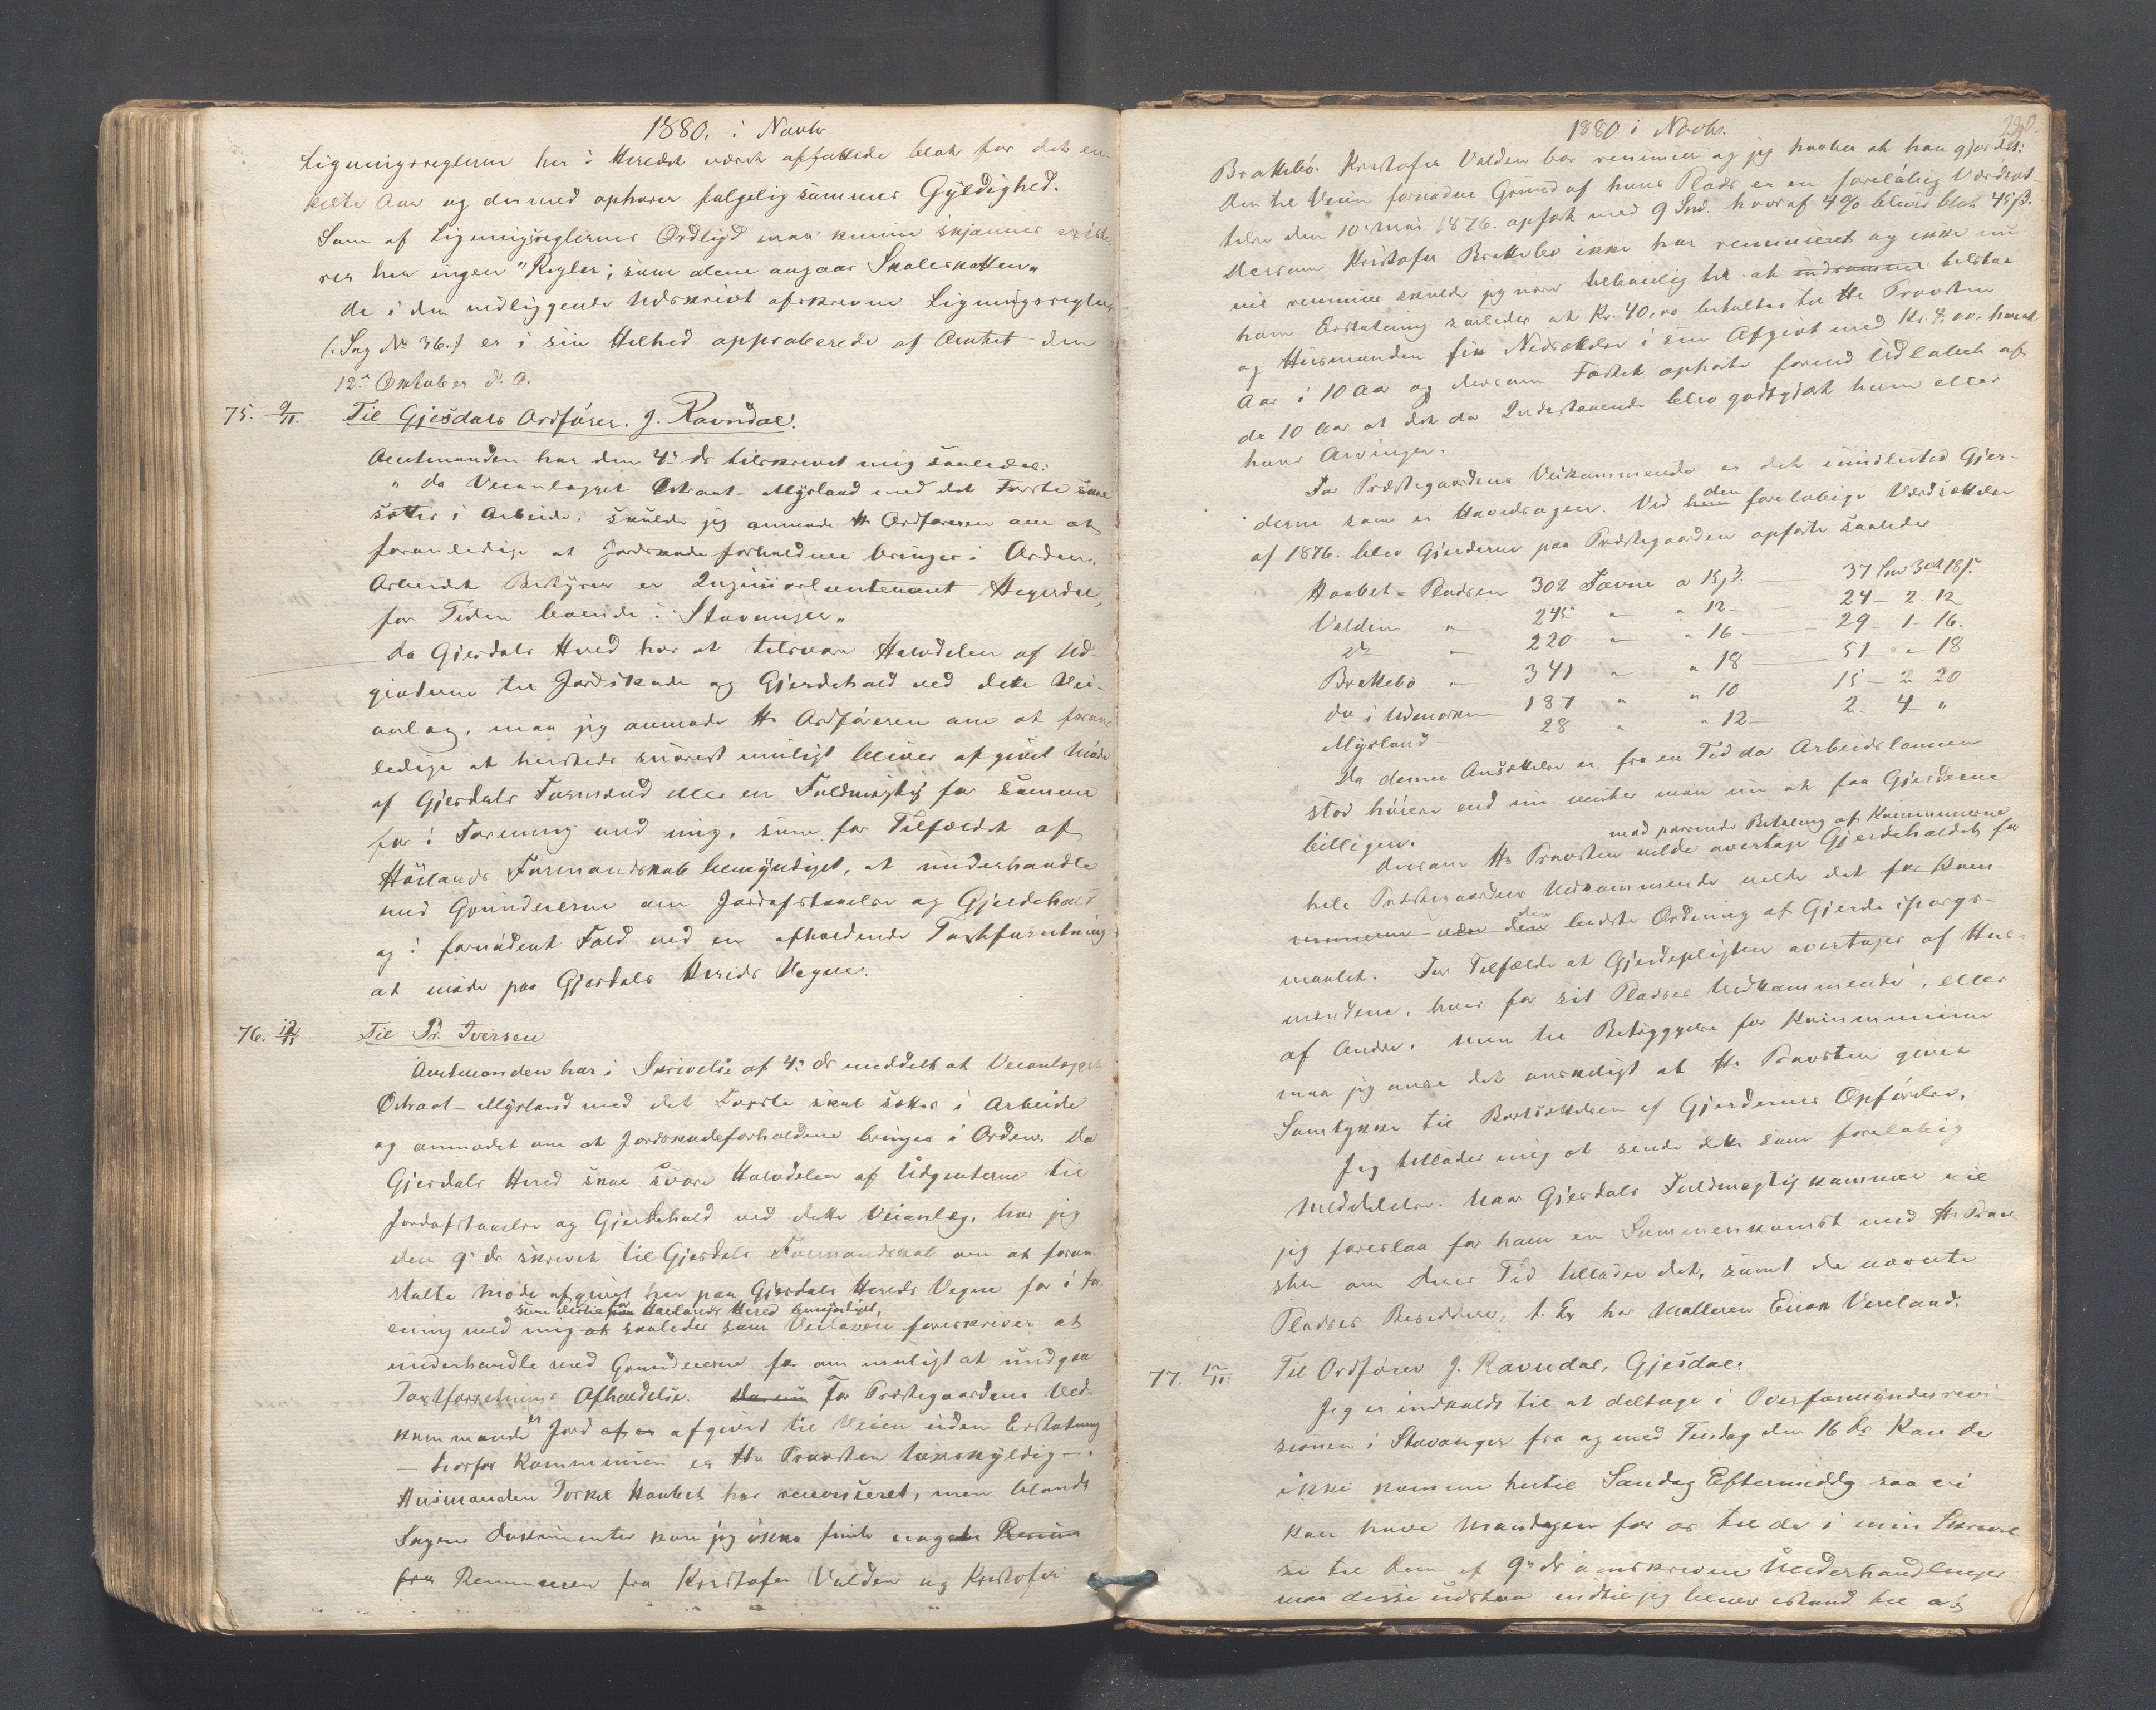 1880. i Novbr.
Ligningsreglerne her i Heredet været affattede blot for det en-
kelte Aar og dermed ophører følgelig sammes Gyldighed.
Som af Ligningsreglernes Ordlyd maa kunne skjønnes existe-
rer her ingen "Regler", som alene angaar Skoleskatten"
De i den vedliggende Udskrivt afskrevne Ligningsregler
(Sag No 36.) er i sin Helhed approberede af Amtet den
12te Oktober d. A.
75. 9/11. Til Gjesdals Ordfører. J. Ravndal.
Amtmanden har den 4de ds tilskrevet mig saaledes:
" Da Veianlægget Østraat - Myrland med det Første skal
sættes i Arbeide, skulde jeg anmode Hr Ordføreren om at
foranledige at Jordskadeforholdene bringes i Orden.
Arbeidets Bestyrer er Ingeniørleutenant Hegerdal,
for Tiden boende i Stavanger"
Da Gjesdals Hered har at tilsvare Halvdelen af Ud-
givterne til Jordskade og Gjerdehold ved dette Vei-
anlæg, maa jeg anmode Hr Ordføreren om at foran-
ledige at hersteds snarest muligt bliver afgivet Møde
af Gjesdals Formænd eller en Fuldmægtig for samme
for i Forening med mig, som for Tilfældet af
Høilands Formandskab bemyndiget, at underhandle
med Grundeierne om Jordafstaaelse og Gjerdehold
og i fornødent Fald ved en afholdende Taxtforretning
at møde paa Gjesdals Hereds Vegne.
76. 12/11 Til Pr. Iversen
Amtmanden har i Skrivelse af 4de ds meddelt at Veianlægget
Østraat - Myrland med det Første skal sættes i Arbeide
og anmodet om at Jordskadeforholdene bringes i Orden. Da
Gjesdals Hered skal svare Halvdelen af Udgivterne til
Jordafstaaelse og Gjerdehold ved dette Veianlæg, har jeg
den 9de ds skrevet til Gjesdals Formandskab om at foran-
stalte Møde afgivet her paa Gjesdals Hereds Vegne for i For-
som dertil for Høilands Hered bemyndiget,
ening med mig at saaledes som Veiloven foreskriver at
underhandle med Grundeierne for om muligt at undgaa
Taxtforretnings Afholdelse. Da nu For Præstegaardens Ved-
kommende er Jord af er afgivet til Veien uden Erstatning
- hvorfor Kommunen er Hr Provsten Takskyldig -.
Husmanden Torkel Haabet har renunseret, men blandt
Sagens Dokumenter kan jeg ikke finde nogen Renun
fra Renunsen fra Kristofer Valden og Kristofer
1880 i Novbr.
280.
Brattebø. Kristofer Valden bør renunsere og jeg haaber at han gjør det:
Den til Veien fornødne Grund af hans Plads er en foreløbig Værdsæt-
telse den 10de Mai 1876. opført med 9 Spd. hvoraf 4% bliver blot 45 ß.
Dersom Kristofer Brattebø ikke har renunseret og ikke nu
vil renunsere skulde jeg være tilbøielig til at indrømme tilstaa
ham Erstatning saaledes at Kr. 40,00 betaltes til Hr Provsten
og Husmanden fik Nedsættelse i sin Afgivt med Kr. 4,00. hvert
Aar i 10 Aar og dersom Fæstet ophørte forend Udløbet af
de 10 Aar at det da Indestaaende blev godtgjort ham eller
hans Arvinger.
For Præstegaardens Vedkommende er det imidlertid Gjer-
derne som er Hovedsagen. Ved hin den foreløbige Værdsættelse
af 1876. blev Gjerderne paa Præstegaarden opført saaledes
Haabet - Pladsen 302 Favne a 15 ß. — 37 Spd 3 ort 18 ß.
Valden " 245 " " 12 — 24 - 2 - 12
ds " 220 " " 16 — 29 - 1 - 16.
Brattebø " 341 " " 18 — 51 - " - 18
do i Udmarken 187 " " 10 15 - 2 20
Myrland 28 " " 12 — 2 - 4 - "
Da denne Ansættelse er fra en Tid da Arbeidslønnen
stod høiere end nu venter man nu at faa Gjerderne
billigere.
mod passende Betaling af Kommunerne
Dersom Hr Provsten vilde overtage Gjerdeholdet for
hele Præstegaardens Vedkommende vilde det for Kom-
munerne være den den bedste Ordning af Gjerdespørgs-
maalet. For Tilfælde at Gjerdepligten overtages af Hus-
mændene, hver for sit Pladses Vedkommende, eller
af Andre, men til Betryggelse for Kommunerne
maa jeg anse det ønskeligt at Hr Provsten giver
Samtykke til Bortsættelsen af Gjerdernes Opførelse.
Jeg tillader mig at sende dette som foreløbig
Meddelelse. Naar Gjesdals Fuldmægtig kommer vil
jeg foreslaa for ham en Sammenkomst med Hr Prov-
sten om Deres Tid tillader det, samt de nævnte
Pladses Besiddere, t. Ex hos Mølleren Enok Vereland.
77. 12/11. Til Ordfører J. Ravndal, Gjesdal.
Jeg er indkaldt til at deltage i Overformynderrevi-
sionen i Stavanger fra og med Tirsdag den 16 ds. Kan De
ikke komme hertil Søndag Eftermiddag saa vi
kan have Mandagen for os til de i min Skrivel-
se til Dem af 9de ds omskrevne Underhandlinger
maa disse udstaa indtil jeg bliver istand til at